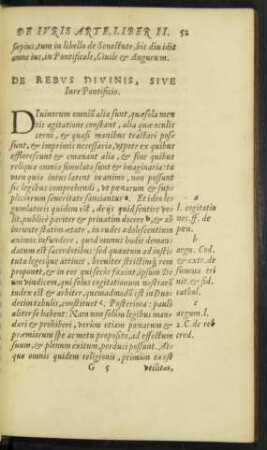 DE IVRIS ARTE, LIBER II. 52
sæpius, tum in libello de Senectute, bis diuidit
omne ius, in Pontificale, Ciuile & Augurum.
DE REBVS DIVINIS, SIVE
Iure Pontificio.
DIuinorum omniũ alia sunt, quæ sola men
tis agitatione constant, alia quæ oculis
cerni, & quasi manibus tractari pos-
sunt, & imprimis necessaria, vtpote ex quibus
efflorescunt & emanant alia, & sine quibus
reliqua omnia simulata sunt & imaginaria: ta
men quia intus latent in animo, non possunt
sic legibus comprehendi, vt pœnarum & sup
pliciorum seueritate sanciantur a. Et ideo le-
gumlatoris quidem est, de ijs quid sentire ve-
lit, publicè pariter & priuatim dicere b, & ab
incunte statim ætate, in rudes adolescentium
animos infundere, quod munus hodie deman-
datum est sacerdotibus: sed quatenus ad institu
tuta legesque attinet, breuiter strictimque rem
proponet, & in eos qui secùs faxint, ipsum De
um vindicem, qui solus cogitationum nostrarũ
iudex est & arbiter, quemadmodũ est in Duo-
decim tabulis, constituet c. Posteriora: paulò
aliter se habent: Nam non solùm legibus man-
dari & prohiberi, verùm etiam pœnarum &
præmiorum spe ac metu proposito, ad effectum
suum, & plenum exitum, perduci possunt. At-
que omnis quidem religionis, primùm ea est
G 5 vtilitas,
a
l. cogitatio
nes. ff. de
pœn.
b
argu. Cod.
& extr. de
summa tri
nit. & fid.
cathol.
c
argum. l.
2. C. de reb
cred.